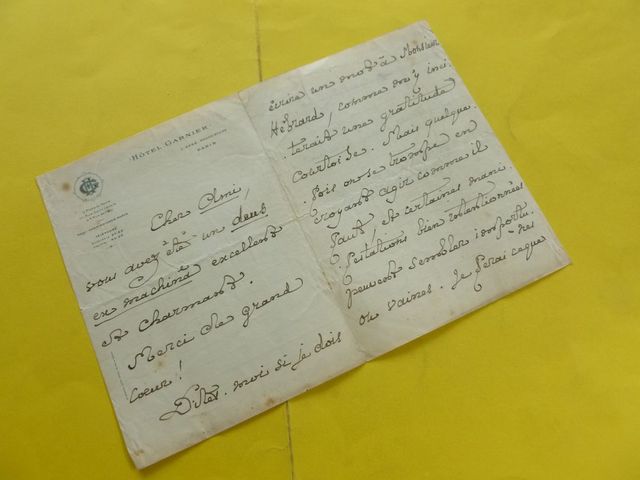 HÔTEL GARNIER
PARIS
Cher Ami,
vous avez été un deus
ex machinâ excellent
et charmant.
Merci de grand
cœur !
Dites-moi si je dois
écrire un mot à Monsieur
Hébrard, comme m'y inci-
terait une gratitude
courtoise. Mais quelque-
fois on se trompe en
croyant agir comme il
faut, et certaines mani-
festations bien intentionnées
peuvent sembler importu-
nes
ou vaines. Je ferai ce que